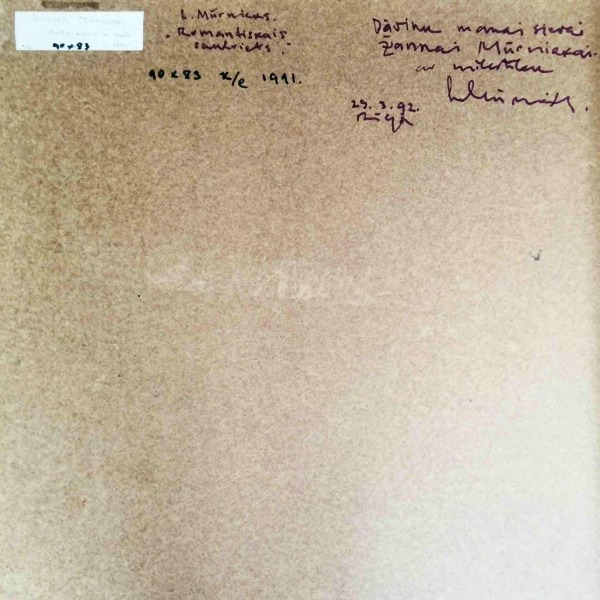 90 x 83
L. Mūrnieks.
"Romantiskais
saulriets."
90 x 83 k/e 1991.
Dāvinu manai sievai
Žannai Mūrniekai.
ar mīlestību
LMūrnieks.
23.3.92.
Rīgā